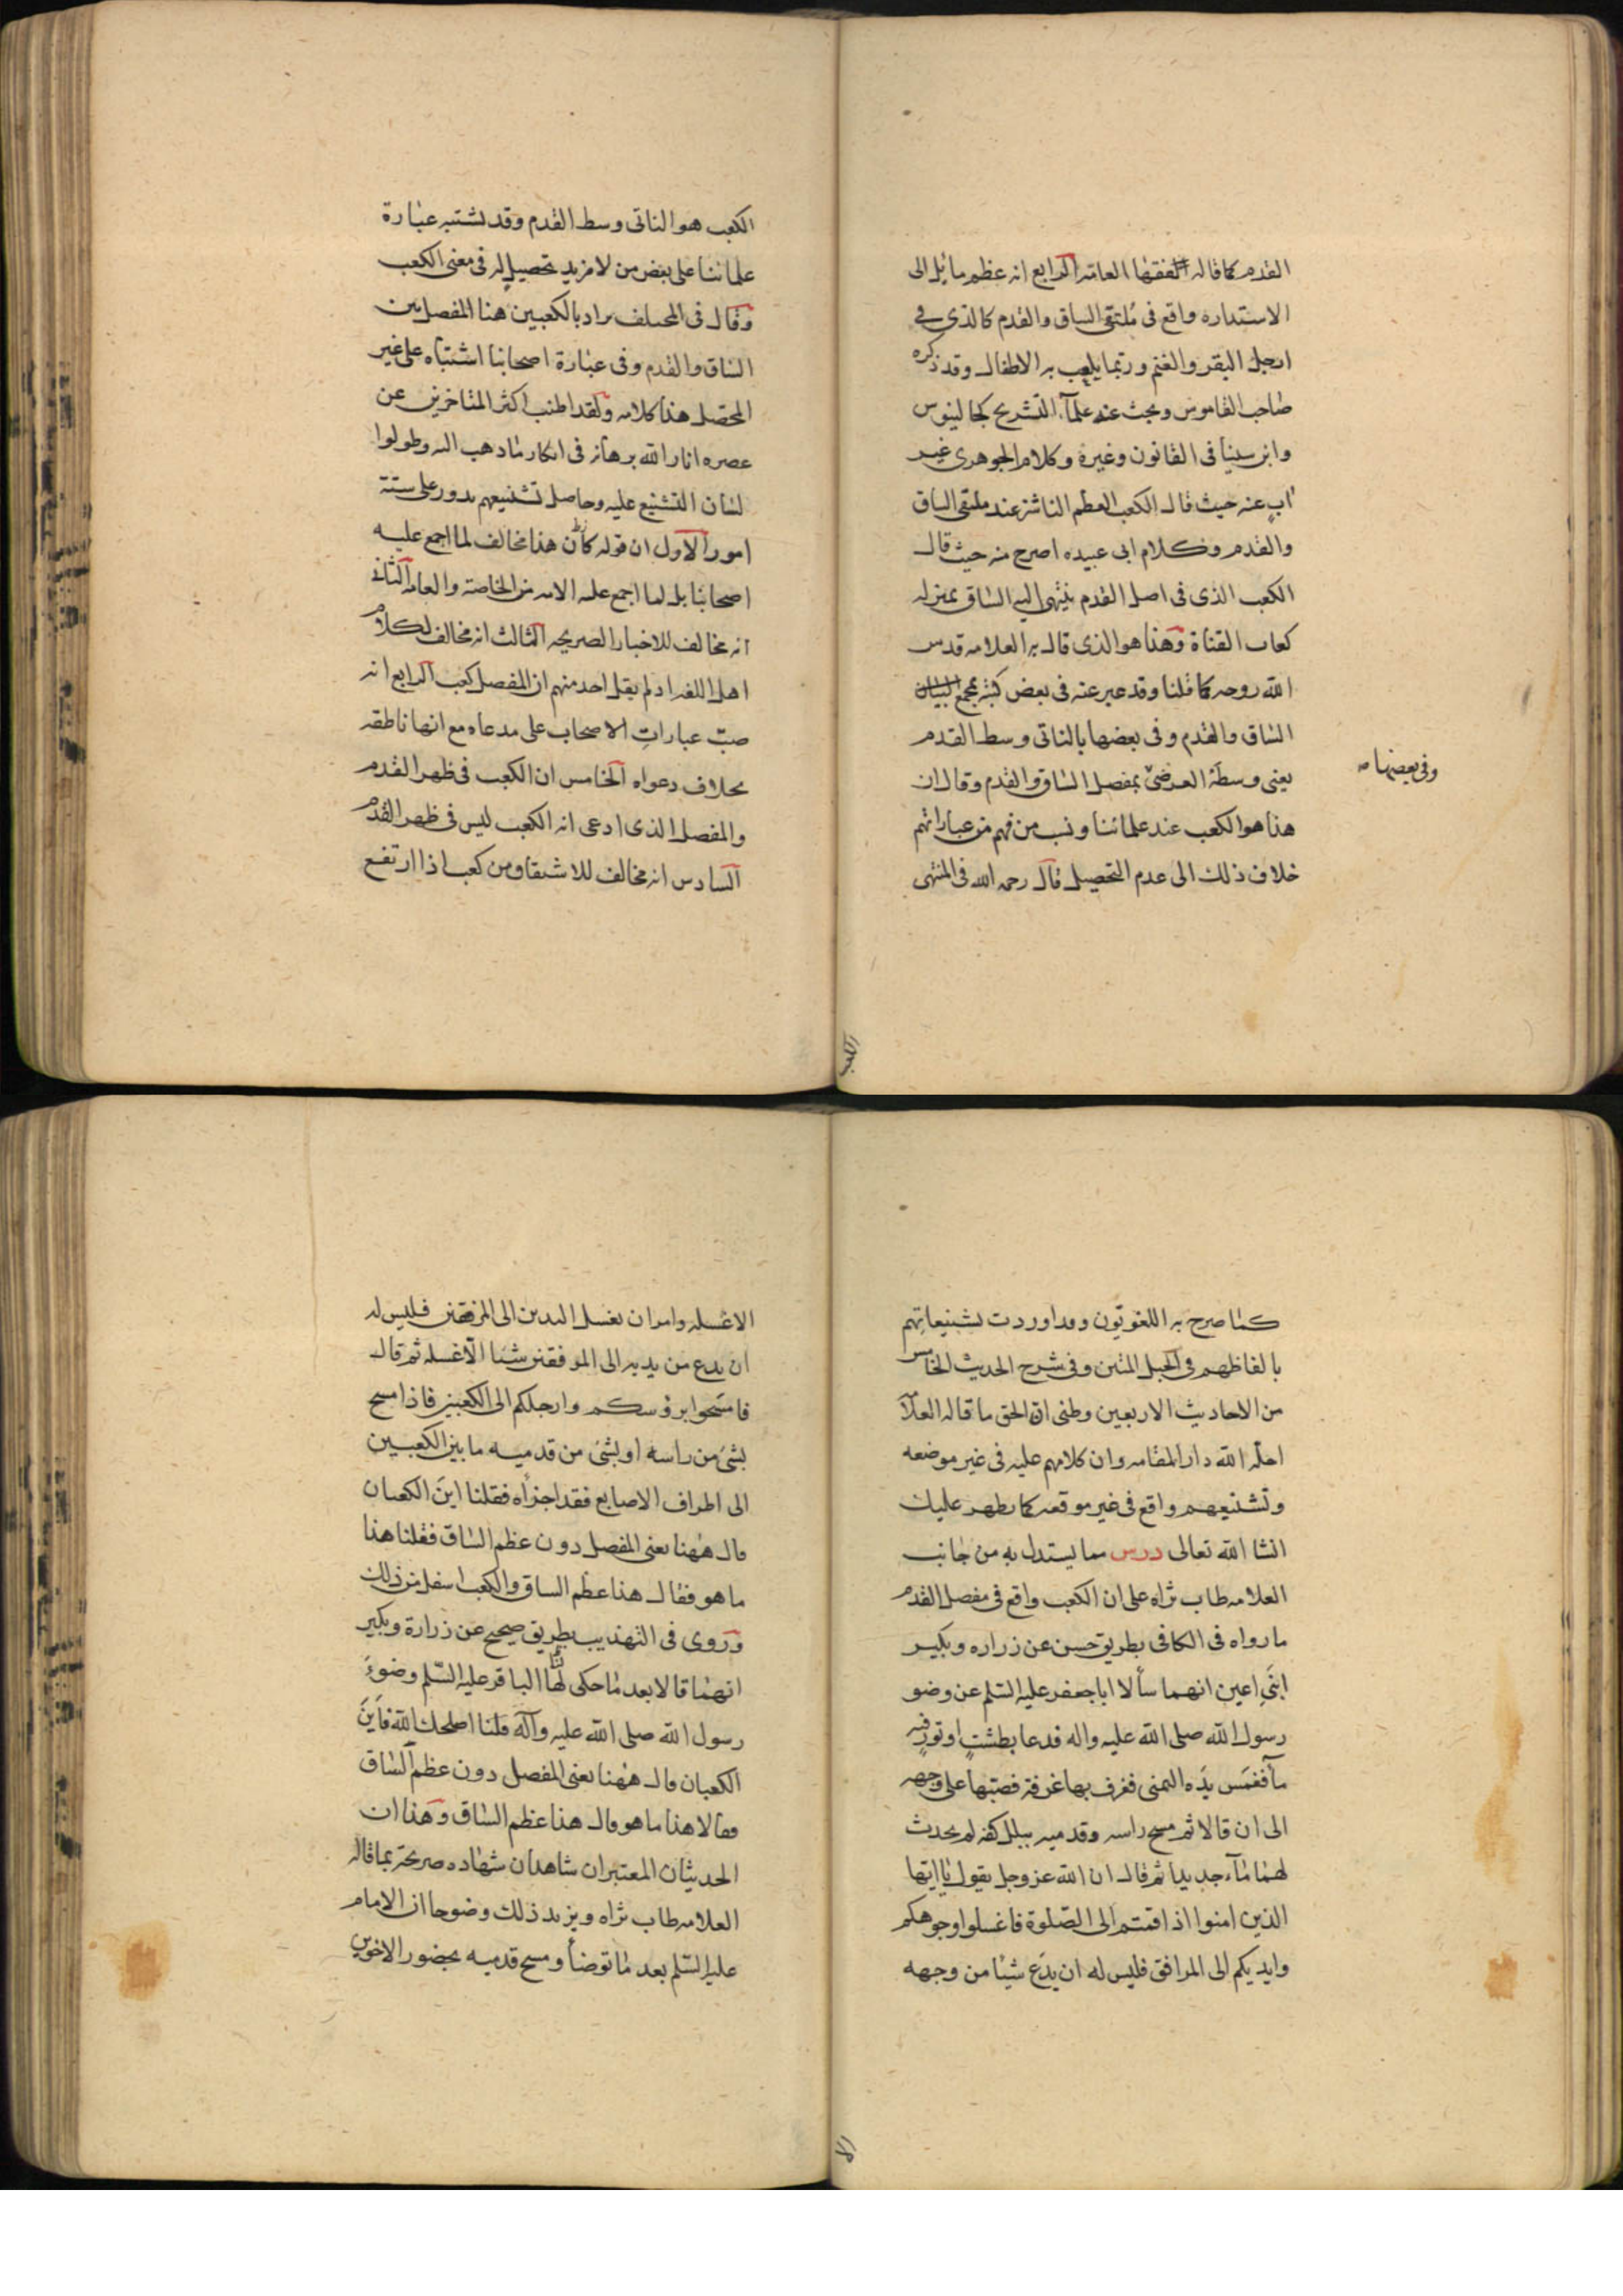 القدم كما قاله الفقها العامه الرابع انه عظم مائل الى
الاستداره واقع فى ملتقى الساق والقدم كالذى فى
ارجل البقر والغنم وربما يلعب به الاطفال وقد ذكره
صاحب القاموس وبحث عنه علمآء التشريح كجالينوس
وابن سينا فى القانون وغيره وكلام الجوهرى غير
اب عنه حيث قال الكعب العظم الناشز عند ملتقى الساق
والقدم وكلام ابى عبيده اصرح منه حيث قال
الكعب الذى فى اصل القدم ينتهى اليه الساق بمنزله
كعاب القناة وهذا هو الذى قال به العلامه قدس
الله روحه كما قلنا وقد عبر عنه فى بعض كتبه بمجمع
الساق والقدم وفى بعضها بالناتى وسط القدم
وفى بعضها
يعنى وسطه العرضى بمفصل الساق والقدم وقال ان
هذا هو الكعب عند علمائنا ونسب من فهم من عباراتهم
خلاف ذلك الى عدم التحصيل قال رحمه الله فى المنتهى
الكعب
الكعب هو الناتى وسط القدم وقد تشتبه عبارة
علمائنا على بعض من لا مزيد تحصيل له فى معنى الكعب
وقال فى المختلف يراد بالكعبين هنا المفصل بين
الساق والقدم وفى عبارة اصحابنا اشتباه على غير
المحصل هذا كلامه ولقد اطنب اكثر المتاخرين عن
عصره انار الله برهانه فى انكار ما ذهب اليه وطولوا
لسان التشنيع عليه وحاصل تشنيعهم يدور على ستة
امور الاول ان قوله هذا مخالف لما اجمع عليه
اصحابنا بل لما اجمع عليه الامه من الخاصة والعامه الثانى
انه مخالف للاخبار الصريحه الثالث انه مخالف لكلام
اهل اللغه اذ لم يقل احد منهم ان المفصل كعب الرابع انه
صب عبارات الاصحاب على مدعاه مع انها ناطقه
بخلاف دعواه الخامس ان الكعب فى ظهر القدم
والمفصل الذى ادعى انه الكعب ليس فى ظهر القدم
السادس انه مخالف للاشتقاق من كعب اذا ارتفع
كما صرح به اللغويون وقد اوردت تشنيعاتهم
بالفاظهم فى الحبل المتين وفى شرح الحديث الخامس
من الاحاديث الاربعين وظنى ان الحق ما قاله العلامه
احله الله دار المقامه وان كلامهم عليه فى غير موضعه
وتشنيعهم واقع فى غير موقعه كما يظهر عليك
انشا الله تعالى درس مما يستدل به من جانب
العلامه طاب ثراه على ان الكعب واقع فى مفصل القدم
ما رواه فى الكافى بطريق حسن عن زراره وبكير
ابنى اعين انهما سألا ابا جعفر عليه السلم عن وضو
رسول الله صلى الله عليه واله فدعا بطشت او تور فيه
مآ فغمس يده اليمنى فغرف بها غرفة فصبتها على وجهه
الى ان قالا ثم مسح راسه وقدميه ببلل كفه لم يحدث
لهما مآء جديدا ثم قال ان الله عز وجل يقول يا ايها
الذين امنوا اذا قمتم الى الصلوة فاغسلوا وجوهكم
وايديكم الى المرافق فليس له ان يدع شيئا من وجهه
الا
الا غسله وامر ان يغسل اليدين الى المرفقين فليس له
ان يدع من يديه الى المرفقين شيئا الا غسله ثم قال
فامسحوا برؤسكم وارجلكم الى الكعبين فاذا مسح
بشئ من راسه او بشئ من قدميه ما بين الكعبين
الى اطراف الاصابع فقد اجزأه فقلنا اين الكعبان
قال ههنا يعنى المفصل دون عظم الساق فقلنا هذا
ما هو فقال هذا عظم الساق والكعب اسفل من ذلك
وروى فى التهذيب بطريق صحيح عن زرارة وبكير
انهما قالا بعد ما حكى لهما الباقر عليه السلم وضوء
رسول الله صلى الله عليه وآله قلنا اصلحك الله فاين
الكعبان قال ههنا يعنى المفصل دون عظم الساق
فقالا هذا ما هو قال هذا عظم الساق وهذا ان
الحديثان المعتبران شاهدان شهاده صريحة بما قاله
العلامه طاب ثراه ويزيد ذلك وضوحا ان الامام
عليه السلم بعد ما توضأ ومسح قدميه بحضور الاخوين